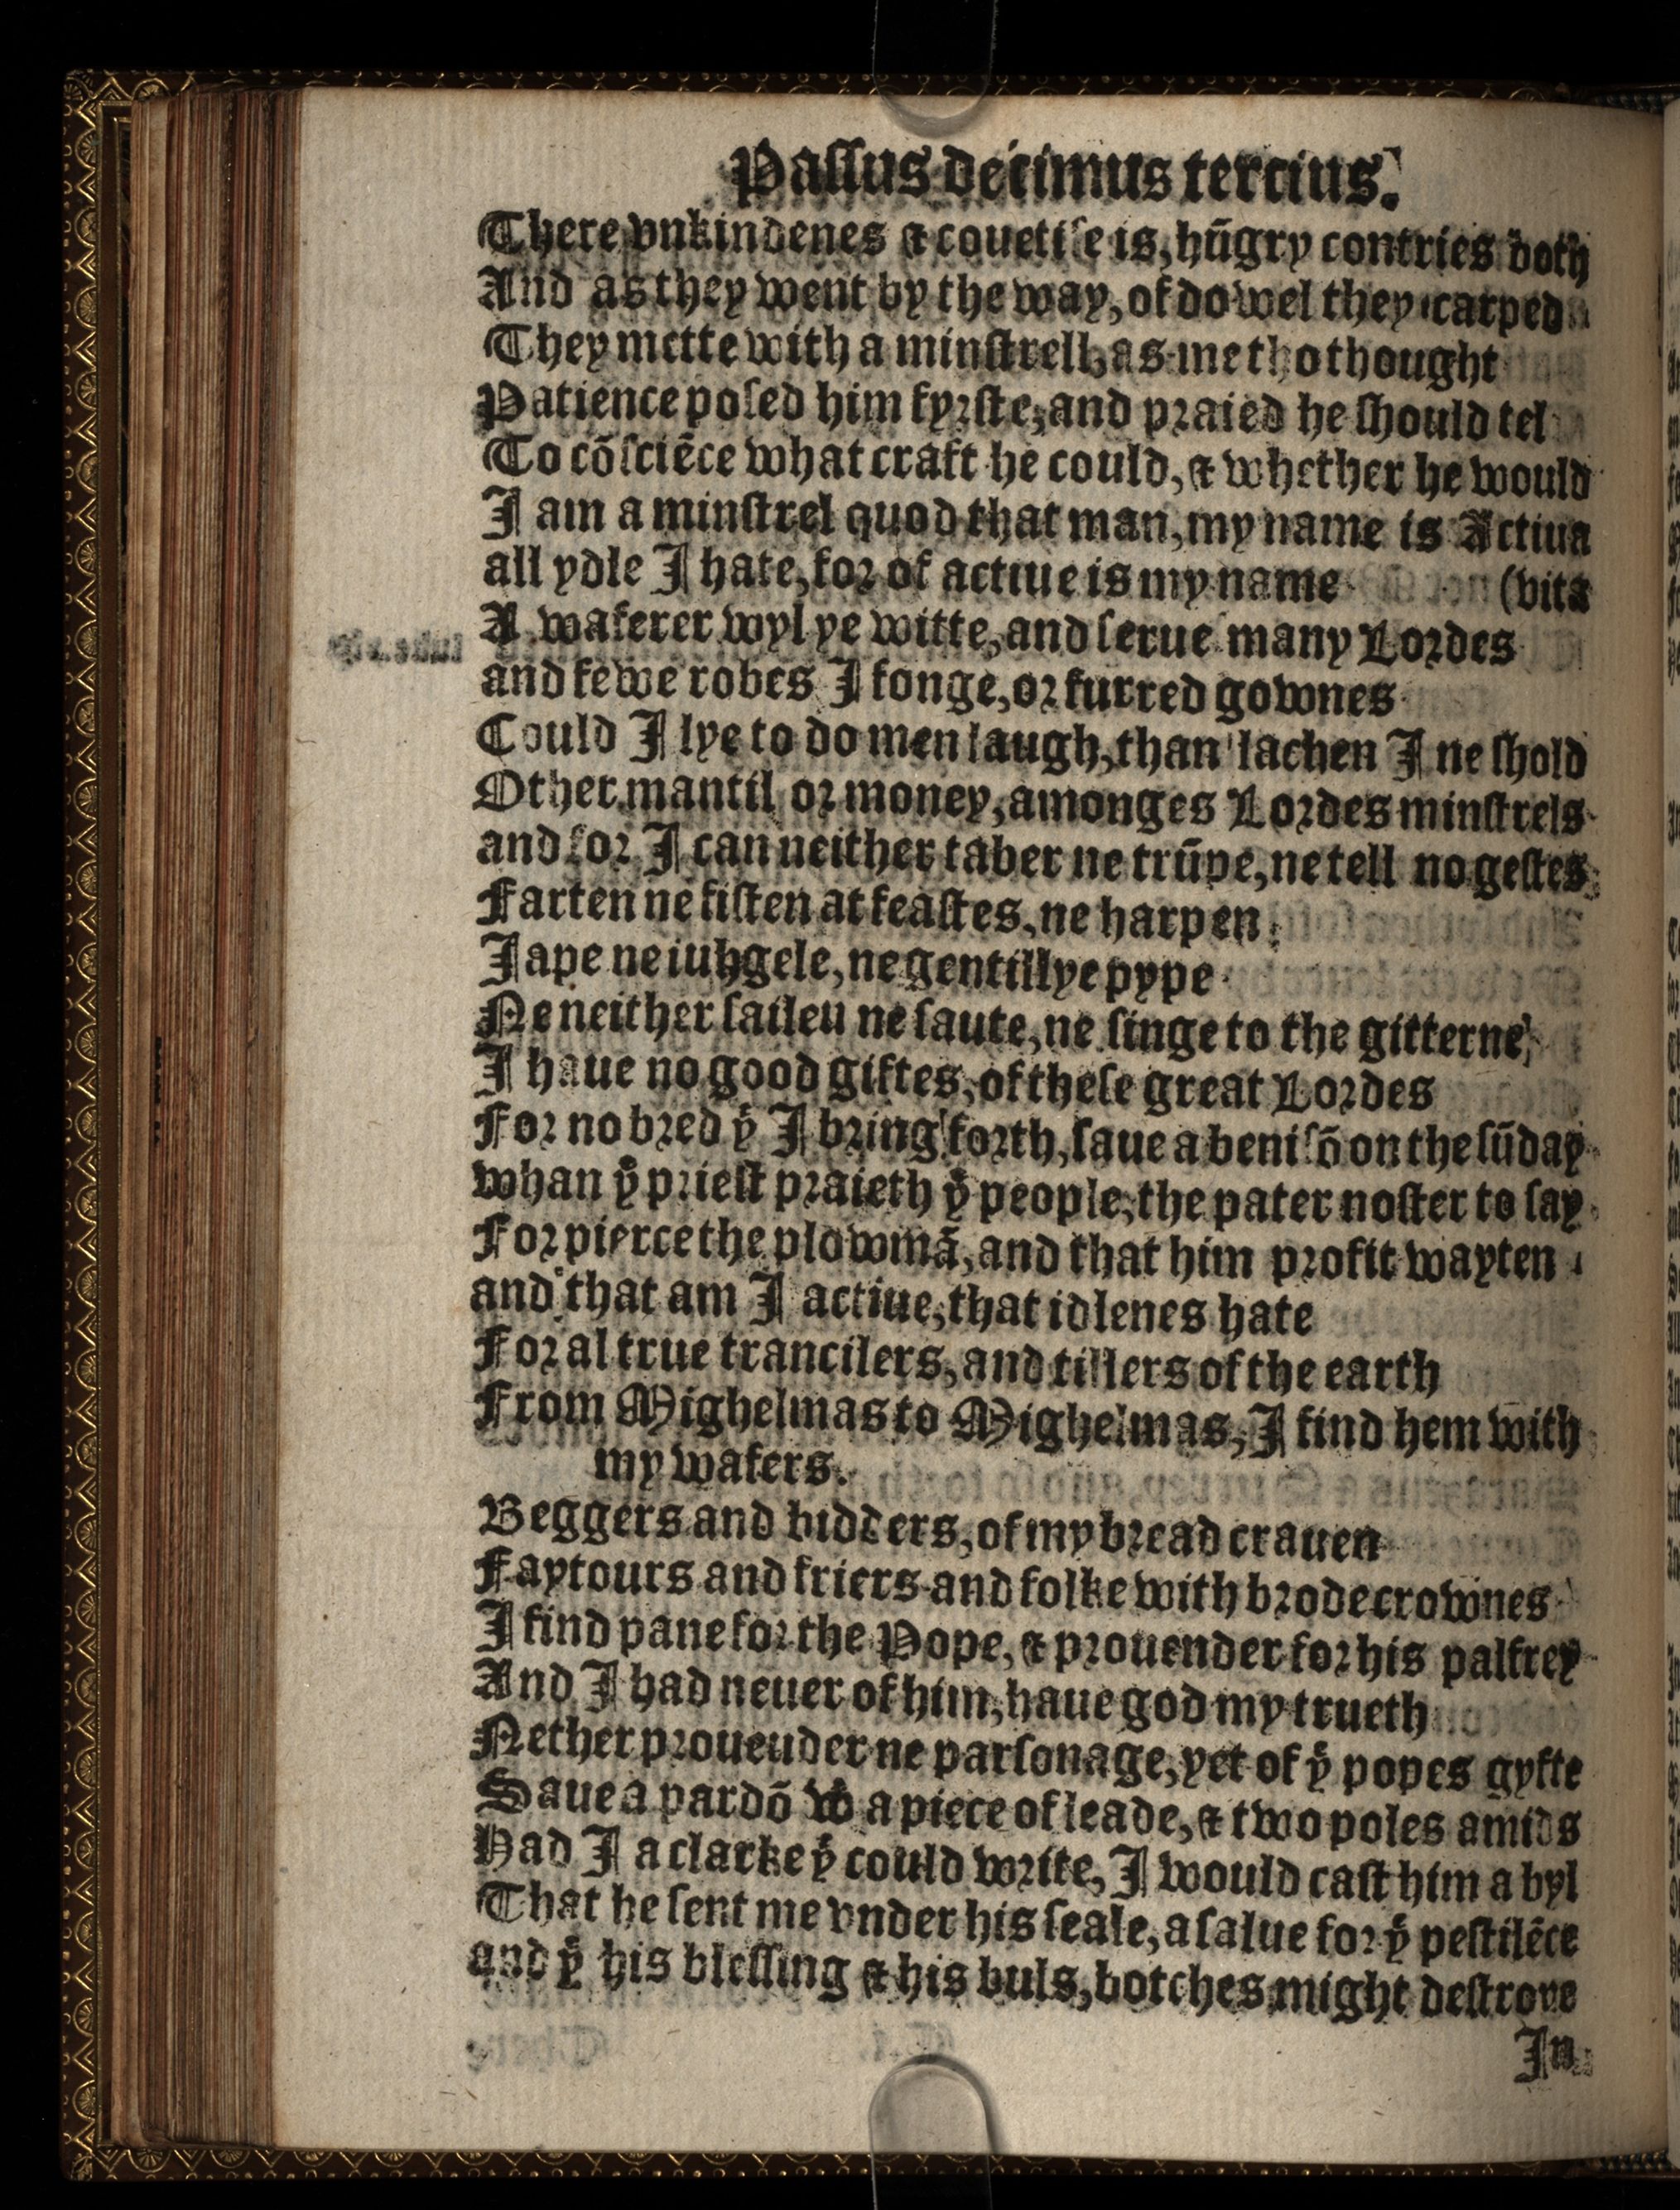 Passus decimus tercius.
There vnkindenes & couetiſe is, hūgry contries both
And as they went by the way, of do wel they carped
They mette with a minſtrell, as me tho thought
Patience poſed him fyrſte, and praied he ſhould tel
To cōſciēce what craft he could, & whether he would
I am a minſtrel quod that man, my name is Actiua
all ydle I hate, for of actiue is my name (vita
A waferer wyl ye witte, and ſerue many Lordes
and fewe robes I fonge, or furred gownes
Could I lye to do men laugh, than lachen I ne ſhold
Other mantil or money, amonges Lordes minſtrels
and for I can neither taber ne trūpe, ne tell no geſtes
Farten ne fiſten at feaſtes, ne harpen
Iape ne iuhgele, ne gentillye pype
Ne neither ſaileu ne ſaute, ne ſinge to the gitterne,
I haue no good giftes, of theſe great Lordes
For no bred yͭ I bring forth, ſaue a beniſō on the ſūday
whan yͤ prieſt praieth yͤ people, the pater noſter to ſay
For pierce the plowmā, and that him profit wayten
and that am I actiue, that idlenes hate
For al true trancilers, and tillers of the earth
From Mighelmas to Mighelmas, I find hem with
my wafers.
Beggers and bidders, of my bread crauen
Faytours and friers and folke with brode crownes
I find pane for the Pope, & prouender for his palfrey
And I had neuer of him, haue god my trueth
Nether proueuder ne parſonage, yet of yͤ popes gyfte
Saue a pardō wͭ a piece of leade, & two poles amids
Had I a clarke yͭ could write, I would caſt him a byl
That he ſent me vnder his ſeale, a ſalue for yͤ peſtilēce
and yͭ his bleſſing & his buls, botches might deſtroye
In